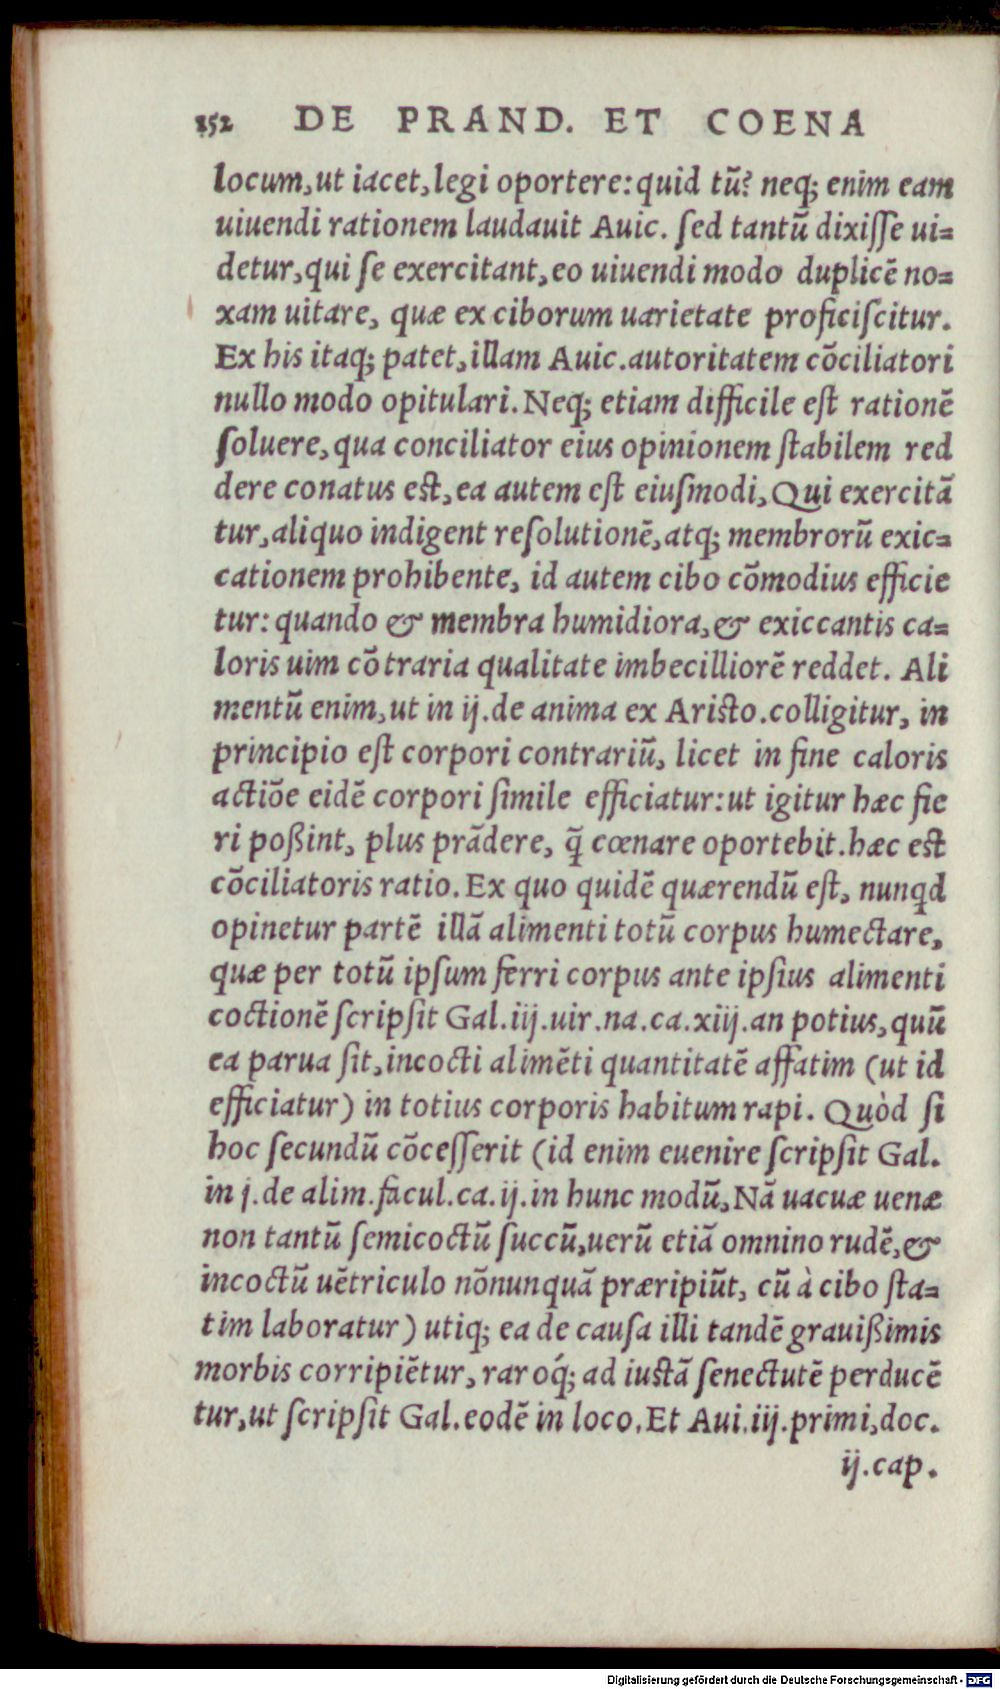 352 DE PRAND. ET COENA
locum, ut iacet, legi oportere: quid tũ? neq; enim eam
uiuendi rationem laudauit Auic. ſed tantũ dixiſſe ui=
detur, qui ſe exercitant, eo uiuendi modo duplicẽ no=
xam uitare, quæ ex ciborum uarietate proficiſcitur.
Ex his itaq; patet, illam Auic. autoritatem cõciliatori
nullo modo opitulari. Neq; etiam difficile eſt rationẽ
ſoluere, qua conciliator eius opinionem ſtabilem red
dere conatus eſt, ea autem eſt eiuſmodi, Qui exercitã
tur, aliquo indigent reſolutionẽ, atq; membrorũ exic=
cationem prohibente, id autem cibo cõmodius efficie
tur: quando & membra humidiora, & exiccantis ca=
loris uim cõtraria qualitate imbecilliorẽ reddet. Ali
mentũ enim, ut in ij. de anima ex Ariſto. colligitur, in
principio eſt corpori contrariũ, licet in fine caloris
actiõe eidẽ corpori ſimile efficiatur: ut igitur hæc fie
ri poßint, plus prãdere, q̃ cœnare oportebit. hæc eſt
cõciliatoris ratio. Ex quo quidẽ quærendũ eſt, nunqd
opinetur partẽ illã alimenti totũ corpus humectare,
quæ per totũ ipſum ferri corpus ante ipſius alimenti
coctionẽ ſcripſit Gal. iij. uir. na. ca. xiij. an potius, quũ
ea parua ſit, incocti alimẽti quantitatẽ affatim (ut id
efficiatur) in totius corporis habitum rapi. Quòd ſi
hoc ſecundũ cõceſſerit (id enim euenire ſcripſit Gal.
in j. de alim. facul. ca. ij. in hunc modũ, Nã uacuæ uenæ
non tantũ ſemicoctũ ſuccũ, uerũ etiã omnino rudẽ, &
incoctũ uẽtriculo nõnunquã præripiũt, cũ à cibo ſta=
tim laboratur) utiq; ea de cauſa illi tandẽ grauißimis
morbis corripiẽtur, raroq́; ad iuſtã ſenectutẽ perducẽ
tur, ut ſcripſit Gal. eodẽ in loco. Et Aui. iij. primi, doc.
ij. cap.
Digitalisierung gefördert durch die Deutsche Forschungsgemeinschaft - DFG